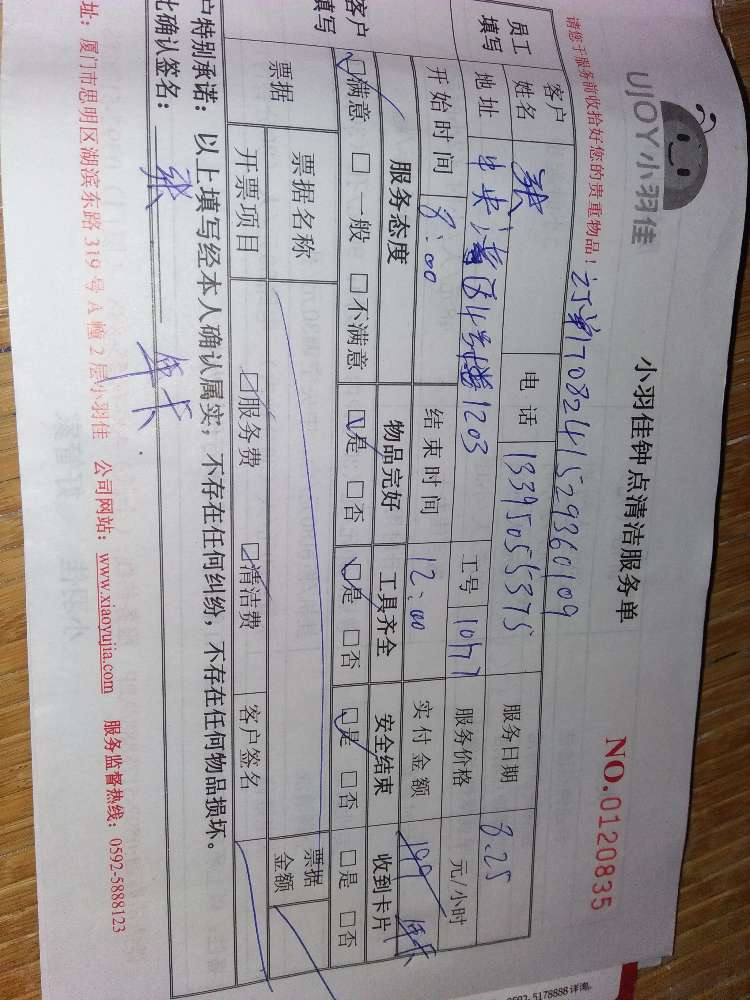 UJOY小羽佳
小羽佳钟点清洁服务单
NO.0120835
请您于服务前收拾好您的贵重物品！
订单1708241529360109
员工填写
客户姓名 张 电话 13395055375 服务日期 8.25
地址 中央 1203 工号 服务价格 元/小时
开始时间 8:00 结束时间 12:00 实付金额 199 年卡
客户填写
服务态度 物品完好 工具齐全 安全结束 收到卡片
☑满意 □一般 □不满意 ☑是 □否 ☑是 □否 ☑是 □否 □是 □否
票据 票据名称 票据金额
开票项目 ☑服务费 ☑清洁费 客户签名
户特别承诺：以上填写经本人确认属实，不存在任何纠纷，不存在任何物品损坏。
此确认签名：张 年卡
址：厦门市思明区湖滨东路319号A幢2层小羽佳 公司网站：www.xiaoyujia.com 服务监督热线：0592-5888123
0592-5178888详询。